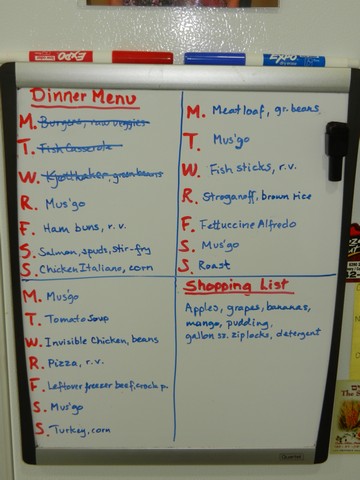 EXPO
EXPO
Dinner Menu
M. Burgers, raw veggies
T. Fish Casserole
W. green beans
R. Mus'go
F. Ham buns, r.v.
S. Salmon, spuds, stir-fry
S. Chicken Italiano, corn
M. Meatloaf, gr. beans
T. Mus'go
W. Fish sticks, r.v.
R. Stroganoff, brown rice
F. Fettuccine Alfredo
S. Mus'go
S. Roast
M. Mus'go
T. Tomato Soup
W. Invisible Chicken, beans
R. Pizza, r.v.
F. Leftover freezer beef, crock p.
S. Mus'go
S. Turkey, corn
Shopping List
Apples, grapes, bananas,
mango, pudding,
gallon sz. ziplocks, detergent
Quartet